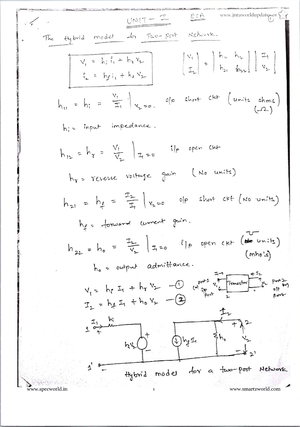 UNIT-I ECA www.jntuworldupdates.org
The Hybrid model for Two-port Network.
V1 = hi i1 + hr V2
i2 = hf i1 + ho V2
[V1 I2] = [h11 h12 h21 h22] [I1 V2]
h11 = hi = V1/I1 | V2=0. o/p short ckt (units ohms) (Ω)
hi = input impedance.
h12 = hr = V1/V2 | I1=0 i/p open ckt
hr = reverse voltage gain (No units)
h21 = hf = I2/I1 | V2=0 o/p short ckt (No units)
hf = forward current gain.
h22 = ho = I2/V2 | I1=0 i/p open ckt (units) (mho's)
ho = output admittance.
V1 = hi I1 + hr V2 — ①
I2 = hf I1 + ho V2 — ②
port 1 i/p port Transistor port 2 o/p port
1 I1 hr V2 hf I1 ho I2 2
1' 2'
Hybrid model for a two-port Network
www.specworld.in 1 www.smartzworld.com